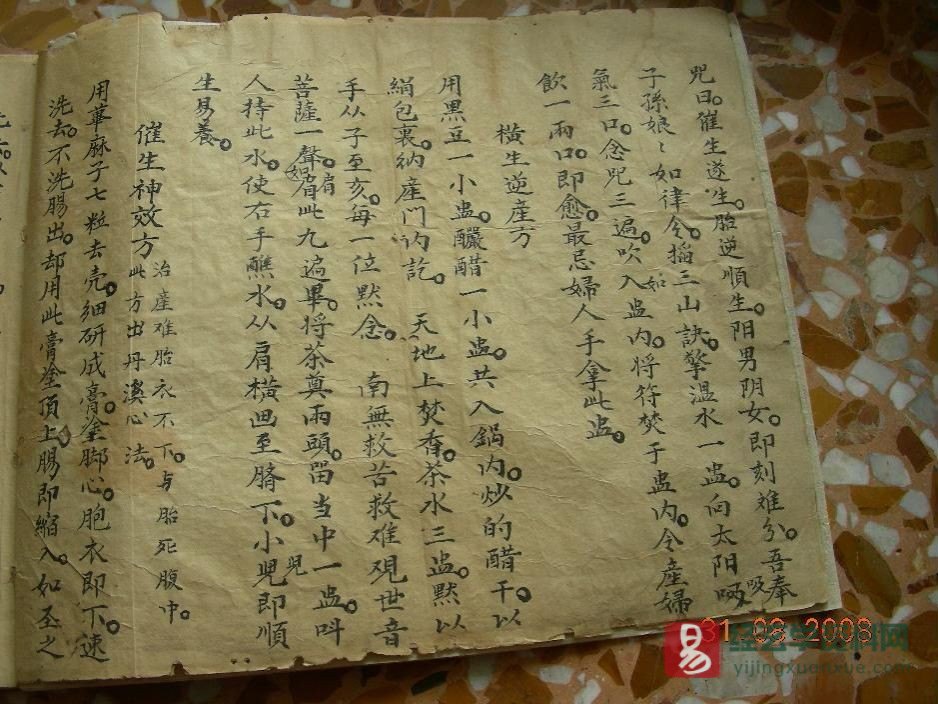 咒曰。催生遂生。胎逆順生。阳男阴女。即刻难分。吾奉
子孫娘〻如律令。搯三山訣。擎温水一盅。向太阳吸
氣三口。念咒三遍。吹入盅内。将符焚于盅内。令產婦
飲一兩口。即愈。最忌婦人手拿此盅。
橫生逆産方
用黑豆一小盅。釅醋一小盅。共入鍋内。炒的醋干。以
絹包裹。納産門内訖。 天地上焚香。茶水三盅。默以
手从子至亥。每一位默念。 南無救苦救难观世音
菩薩一聲。如此九遍畢。将茶奠兩頭。畱当中一盅。呌
人持此水。使右手蘸水。从肩橫画至臍下。小児即順
生易養。
催生神效方
治產难胎衣不下。与胎死腹中。
此方出丹溪心法。
用萆麻子七粒去壳。细研成膏。塗脚心。胞衣即下。速
洗去。不洗腸出。却用此膏塗頂上。腸即縮入。如至之
31 03 2008
易
yijingxuanxue.com